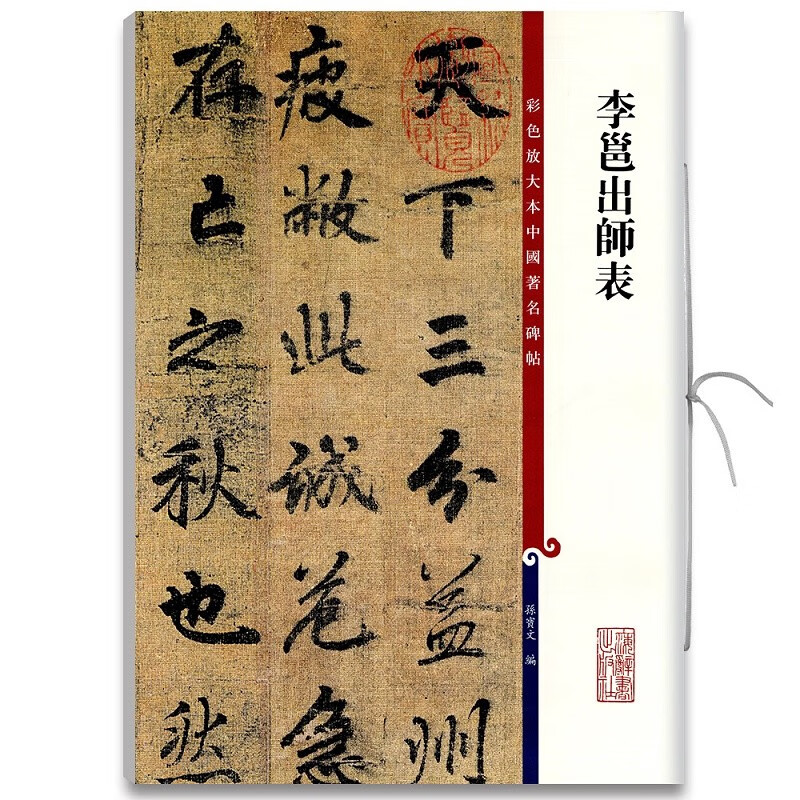 李邕出師表
海辭書
出版社
彩色放大本中國著名碑帖
孫寶文 編
天下三分益州
疲敝此誠危急
存亡之秋也然